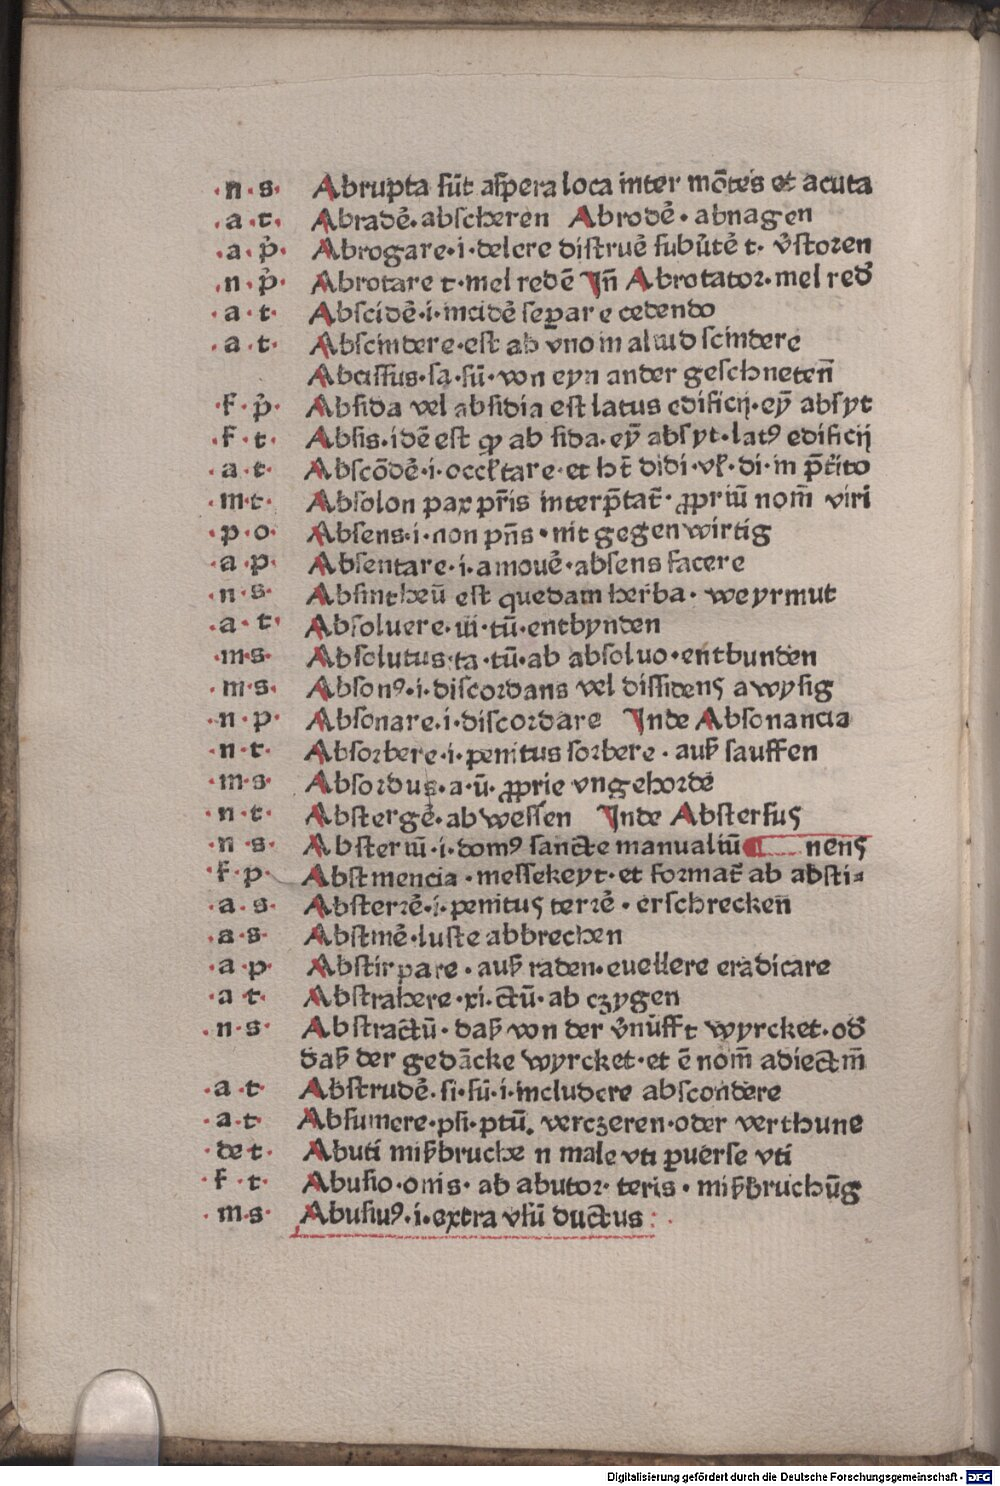 ·n·s· Abrupta sūt aſpera loca inter mōtes et acuta
·a·t· Abradē·abſcheren Abrodē·abnagen
·a·p̄· Abrogare·i·delere diſtruē ſubūtē t·v̄ſtoren
·n·p̄· Abrotare t·mel redē Jn̄ Abrotator·mel red
·a·t· Abſcidē·i·incidē ſeꝑare cedendo
·a·t· Abſcindere·eſt ab vno in aliud ſcindere
Abciſſus·ſa·ſū·von eyn ander geſchneten̄
·f·p̄· Abſida vel abſidia eſt latus edificij·eȳ abſyt
·f·t· Abſis·idē eſt ꝙ ab ſida·eȳ abſyt·latꝰ edificij
·a·t· Abſcōdē·i·occltare·et ht̄ didi·vl·di·in p̄t̄ito
·m·t· Abſolon pax pr̄is interp̄tat̄·ꝓpriū nom̄ viri
·p·o· Abſens·i·non pn̄s·nit gegenwirtig
·a·p· Abſentare·i·amouē·abſens facere
·n·s· Abſintheū eſt quedam herba·weyrmut
·a·t· Abſoluere·ui·tū·entbynden
·m·s· Abſolutus·ta·tū·ab abſoluo·entbunden
·m·s· Abſonꝰ·i·diſcordans vel diſſidens awyſig
·n·p· Abſonare·i·diſcordare Jnde Abſonancia
·n·t· Abſorbere·i·penitus ſorbere·auß ſauffen
·m·s· Abſordus·a·ū·ꝓprie vngehorde
·n·t· Abſtergē·abweſſen Jnde Abſterſus
·n·s· Abſteriū·i·domꝰ ſancte manualiū ¶ nens
·f·p· Abſtinencia·meſſekeyt·et format̄ ab abſti=
·a·s· Abſterrē·i·penitus terrē·erſchrecken
·a·s· Abſtinē·luſte abbrechen
·a·p· Abſtirpare·auß raden·euellere eradicare
·a·t· Abſtrahere·xi·ctū·ab czygen
·n·s· Abſtractū·daß von der v̄nūfft wyrcket·od
daß der gedācke wyrcket·et ē nom̄ adiectm̄
·a·t· Abſtrudē·ſi·ſū·i·includere abſcondere
·a·t· Abſumere·pſi·ptū·verczeren·oder verthune
·de t· Abuti mißbruche n male vti ꝑuerſe vti
·f·t· Abuſio·onis·ab abutor·teris·mißbruchūg
·m·s· Abuſiuꝰ·i·extra vſū ductus:·
Digitalisierung gefördert durch die Deutsche Forschungsgemeinschaft · DFG